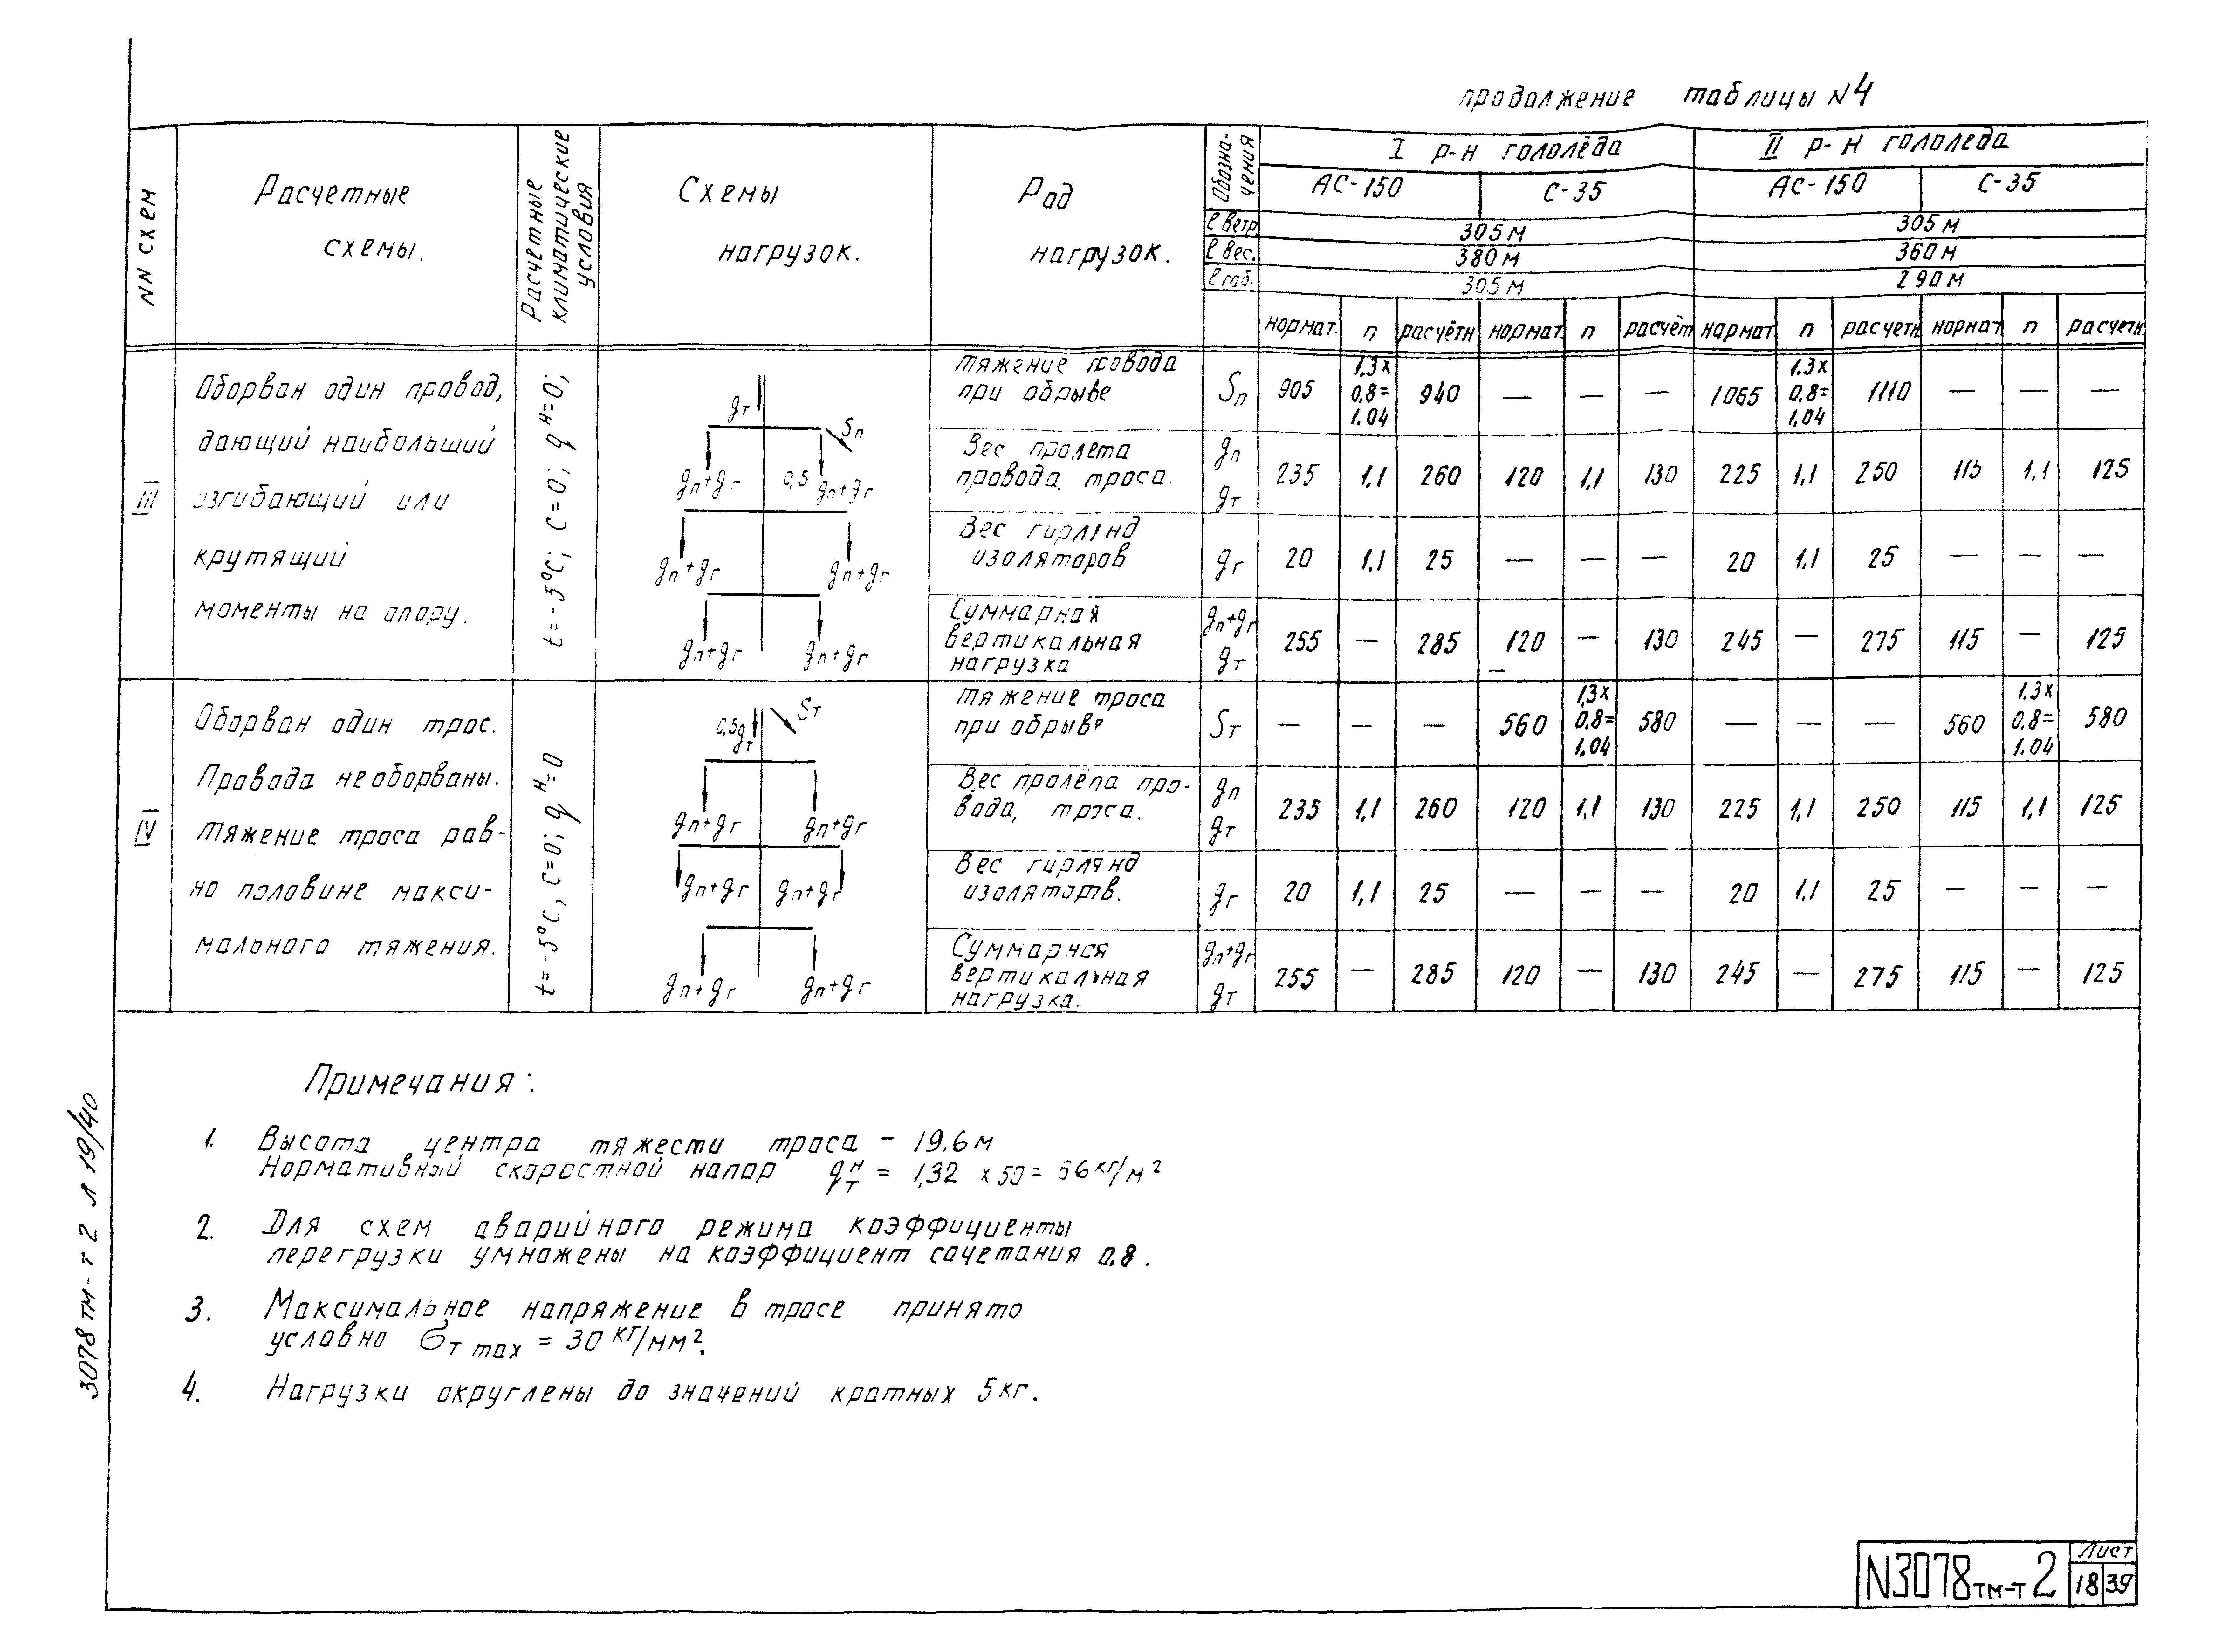 продолжение таблицы N4
NN схем
Расчетные
схемы.
Расчетные
климатические
условия
Схемы
нагрузок.
Род
нагрузок.
Обозна-
чения
I р-н гололёда
II р-н гололеда
АС-150
С-35
АС-150
С-35
ℓ ветр
305 м
305 м
ℓ вес.
380 м
360 м
ℓ габ.
305 м
290 м
нормат. n расчётн нормат. n расчёт нармат n расчетн нормат n расчетн
III
Оборван один провод,
дающий наибольший
изгибающий или
крутящий
моменты на опору.
t=-5°С; С=0; qн=0;
gт
Sп
gп+gг 0,5 gп+gг
gп+gг gп+gг
gп+gг gп+gг
тяжение провода
при обрыве
Sп
905 1,3х 0,8= 1.04 940 — — — 1065 1.3х 0,8= 1,04 1110 — — —
Вес пролета
провода, троса.
gп
gт
235 1,1 260 120 1,1 130 225 1,1 250 115 1,1 125
Вес гирлянд
изоляторов
gг
20 1,1 25 — — — 20 1,1 25 — — —
Суммарная
вертикальная
нагрузка
gп+gг
gт
255 — 285 120 — 130 245 — 275 115 — 125
IV
Оборван один трос.
Провода не оборваны.
тяжение троса рав-
но половине макси-
мального тяжения.
t=-5°С, С=0; qн=0
0,5gт
Sт
gп+gг gп+gг
gп+gг gп+gг
gп+gг gп+gг
тяжение троса
при обрыве
Sт
— — — 560 1,3х 0,8= 1,04 580 — — — 560 1.3х 0,8= 1.04 580
Вес пролёта про-
вода, троса.
gп
gт
235 1,1 260 120 1,1 130 225 1,1 250 115 1,1 125
Вес гирлянд
изоляторов.
gг
20 1,1 25 — — — 20 1,1 25 — — —
Суммарная
вертикальная
нагрузка.
gп+gг
gт
255 — 285 120 — 130 245 — 275 115 — 125
Примечания:
1. Высота центра тяжести троса – 19.6 м
Нормативный скоростной напор qтн = 1,32 х 50 = 66 кг/м²
2. Для схем аварийного режима коэффициенты
перегрузки умножены на коэффициент сочетания 0,8.
3. Максимальное напряжение в тросе принято
условно σт max = 30 кг/мм².
4. Нагрузки округлены до значений кратных 5 кг.
3078 тм-т 2 л. 19/40
N3078тм-т 2
Лист
18 39